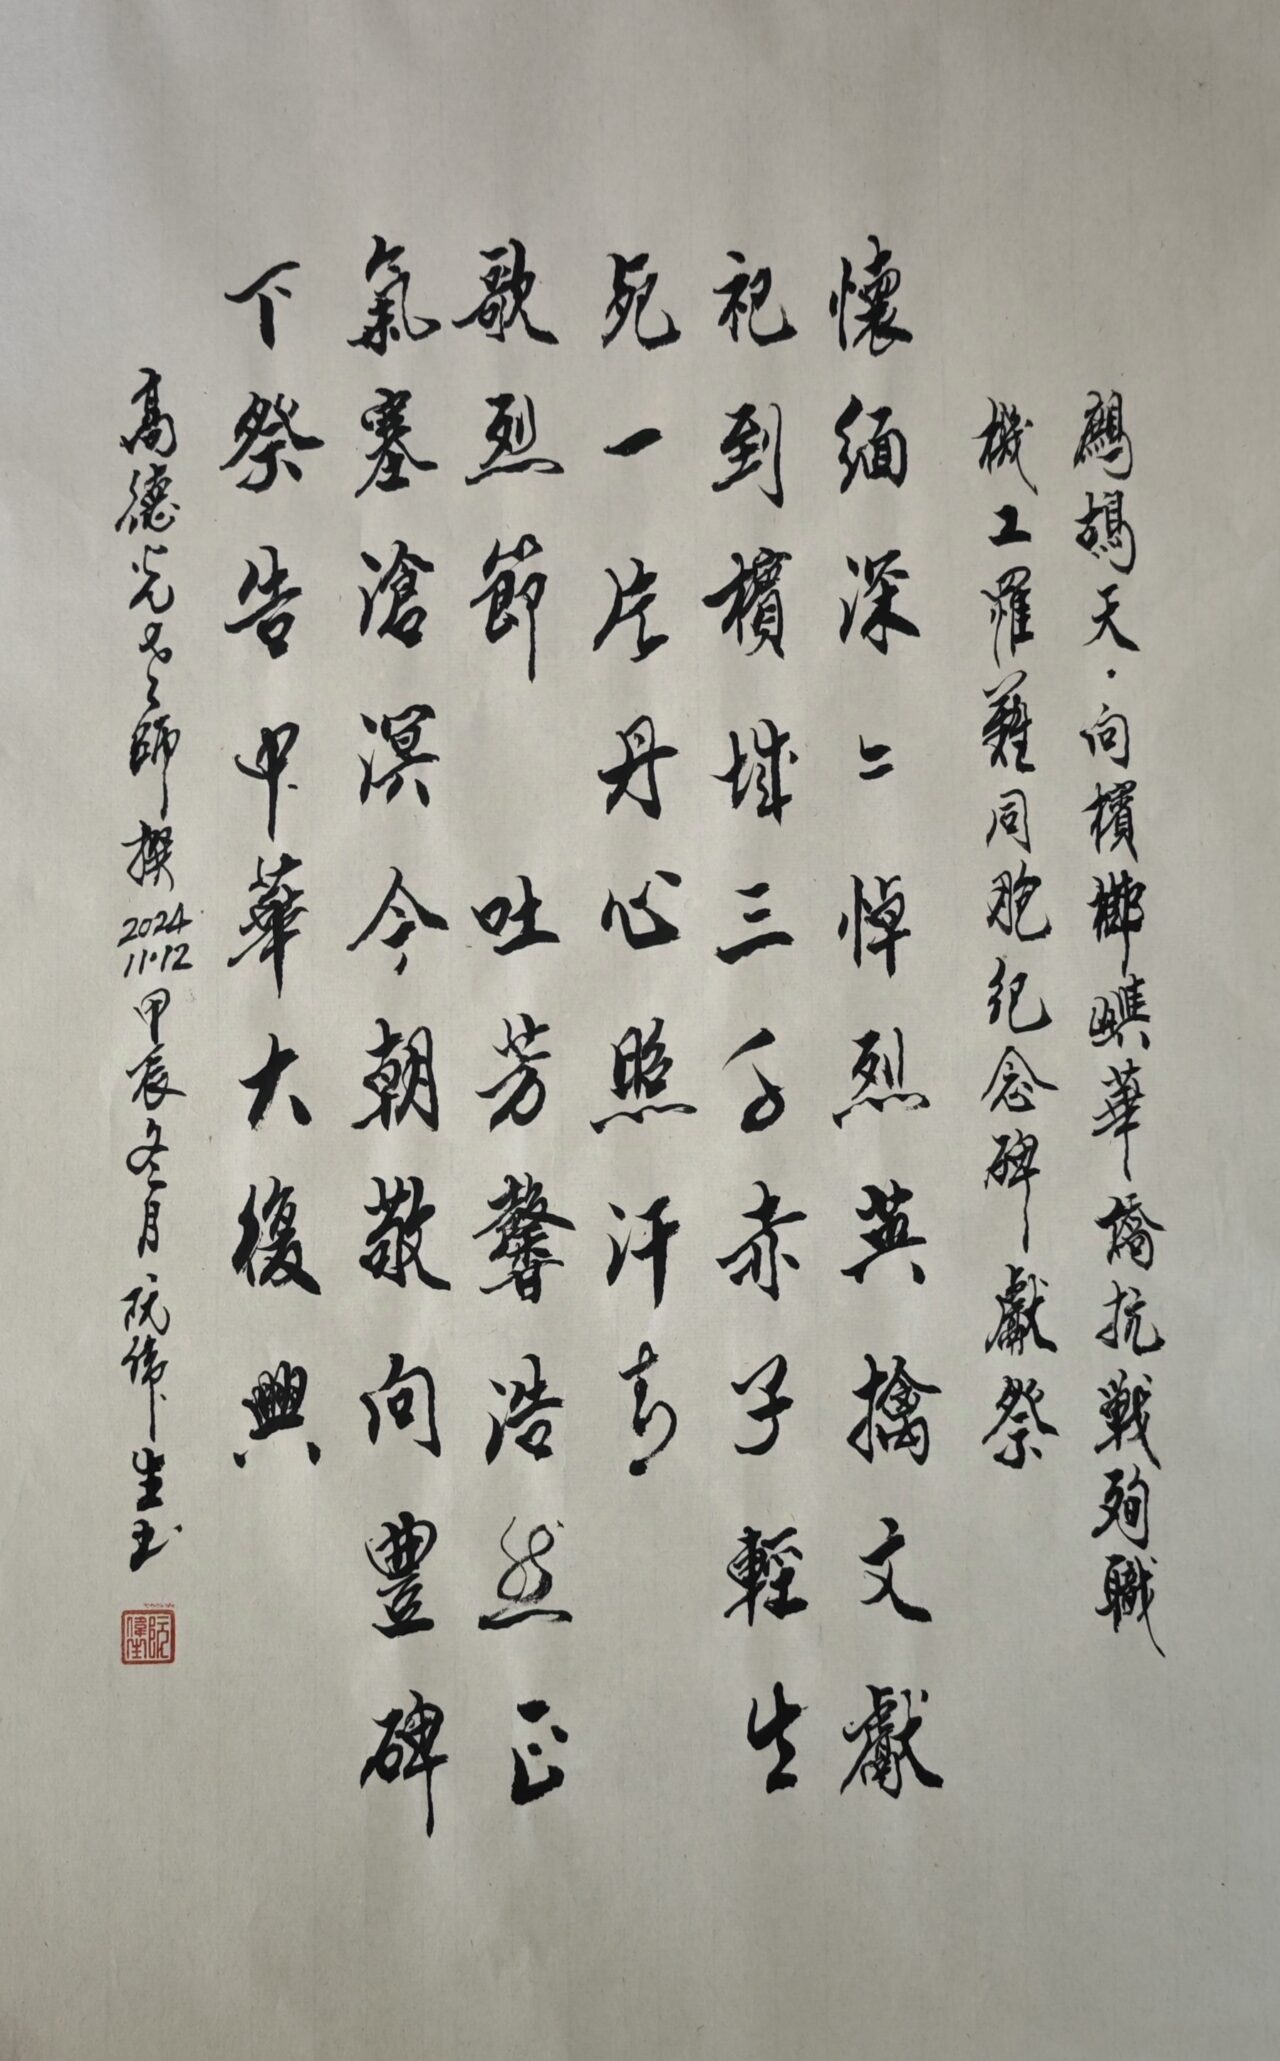 鷓鴣天·向檳榔嶼華僑抗戰殉職
機工罹難同胞紀念碑獻祭
懷緬深二悼烈英擒文獻
祀到檳城三千赤子輕生
死一片丹心照汗青
歌烈節 吐芳馨浩然正
氣塞滄溟今朝敬向豐碑
下祭告中華大復興
高德光老師撰 2024 11·12 甲辰冬月阮偉生书
阮偉生